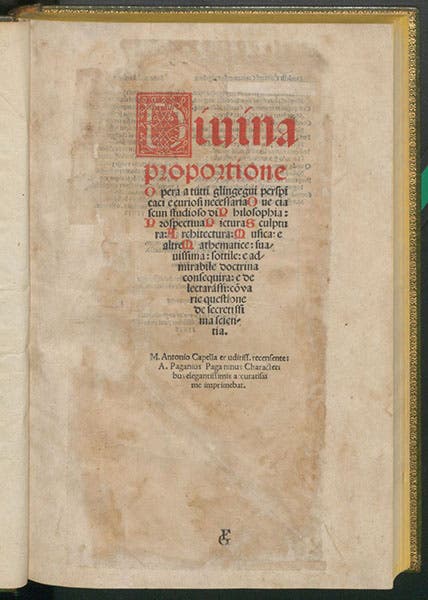 Divina
proportione
Opera a tutti glingegni perspi
caci e curiosi necessaria Oue cia
scun studioso di Philosophia:
Prospectiua Pictura Sculptu
ra: Architectura: Musica: e
altre Mathematice: sua
uissima: sottile: e ad
mirabile doctrina
consequira: e de
lectarassi: cõ va
rie questione
de secretissi
ma scien-
tia.
M. Antonio Capella eruditiss. recensente:
A. Paganius Paganinus Characteri
bus elegantissimis accuratissi
me imprimebat.